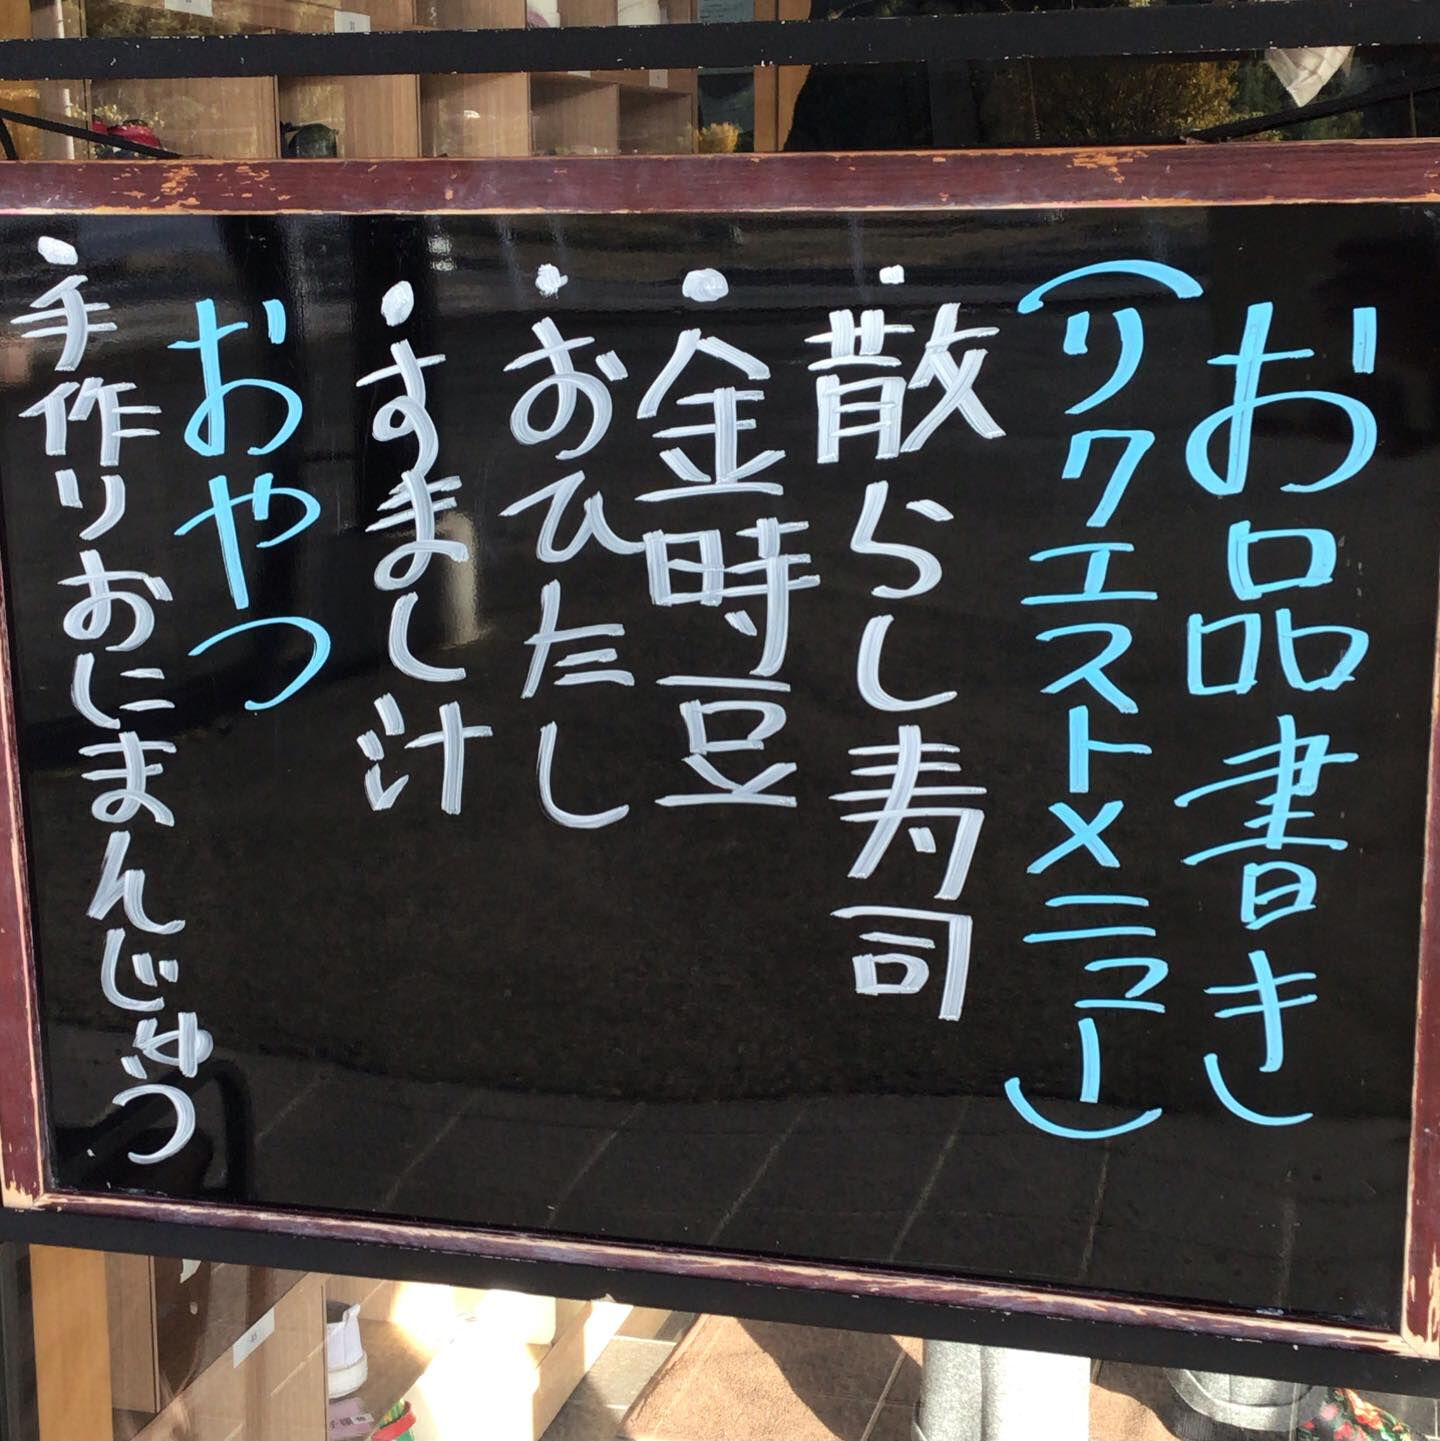 お品書き
(リクエストメニュー)
・散らし寿司
・金時豆
・おひたし
・すまし汁
おやつ
・手作りおにまんじゅう